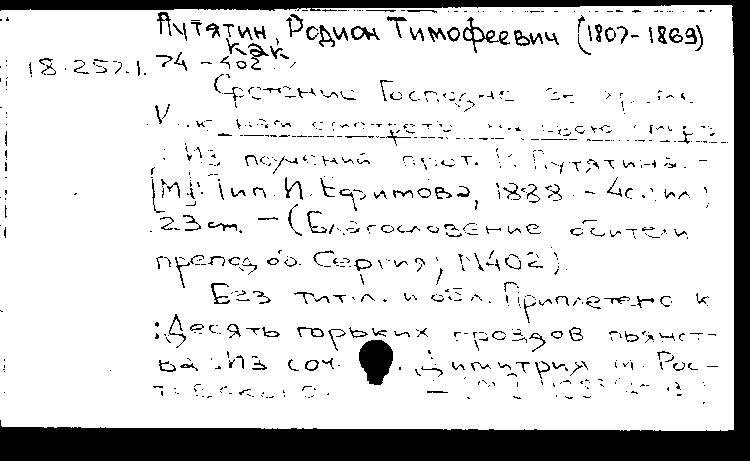 Путятин, Родион Тимофеевич (1807-1869)
как
18.257.1. 74-402.
Сретение Господне
V к нам смотреть на свою смерть
: Из поучений прот. Р. Путятина. -
[М.]: Тип. И. Ефимова, 1888. - 4с.: ил;
23 cm. - (Благословение обители
преподоб. Сергия; N402).
Без тит. л. и обл. Приплетено к
: Десять горьких гроздов пьянст-
ва: Из соч. Димитрия м. Рос-
товского. -